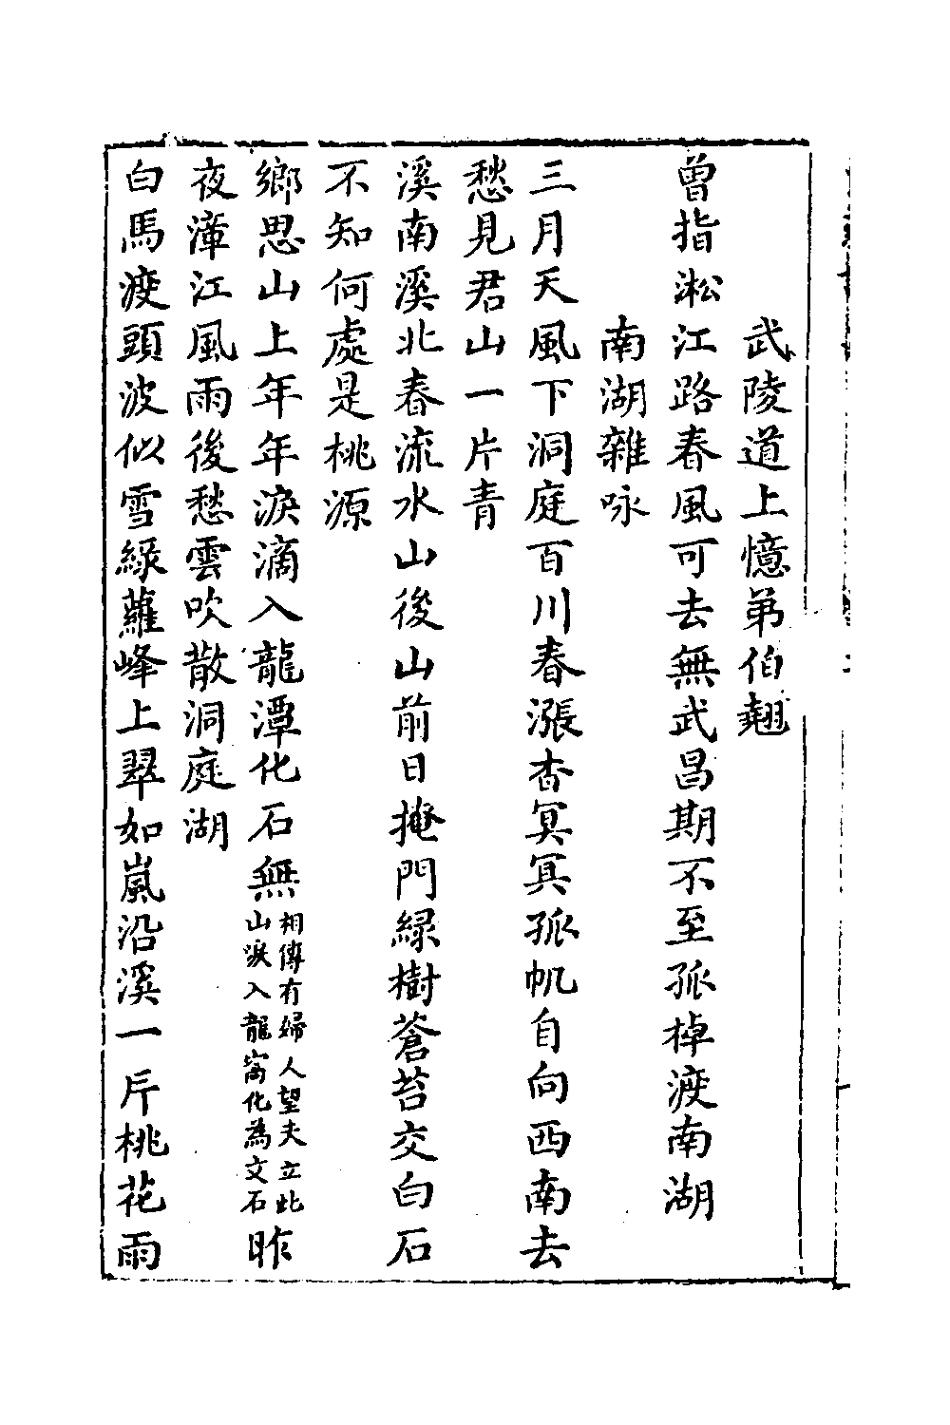 武陵道上憶弟伯翹
曾指淞江路春風可去無武昌期不至孤棹渡南湖
南湖雜咏
三月天風下洞庭百川春漲杳冥冥孤帆自向西南去
愁見君山一片青
溪南溪北春流水山後山前日掩門緑樹蒼苔交白石
不知何處是桃源
鄉思山上年年淚滴入龍潭化石無相傳有婦人望夫立此山淚入龍窩化為文石昨
夜漳江風雨後愁雲吹散洞庭湖
白馬渡頭波似雪緑蘿峰上翠如嵐沿溪一片桃花雨